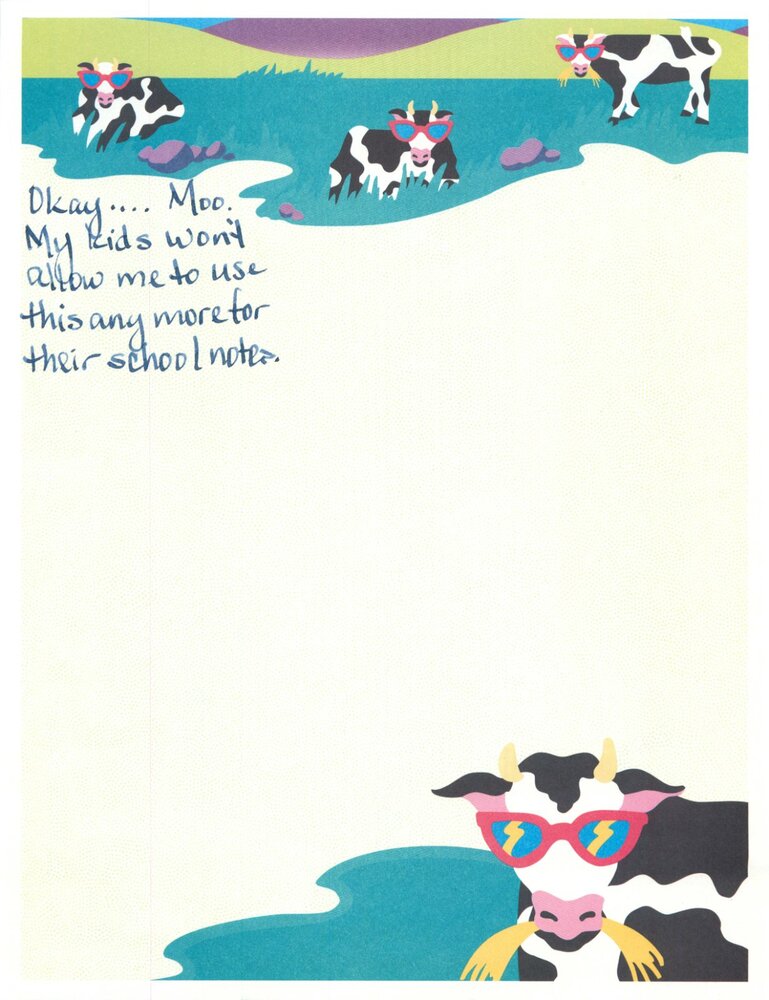 Okay.... Moo.
My kids won't
allow me to use
this any more for
their school notes.